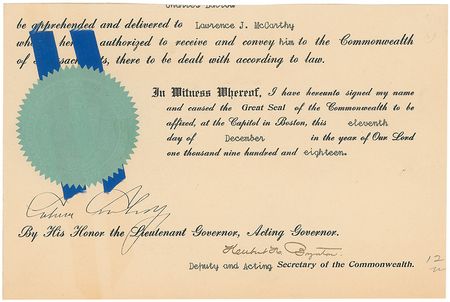 be apprehended and delivered to Lawrence J. McCarthy
who is hereby authorized to receive and convey him to the Commonwealth
of Massachusetts, there to be dealt with according to law.
In Witness Whereof, I have hereunto signed my name
and caused the Great Seal of the Commonwealth to be
affixed, at the Capitol in Boston, this eleventh
day of December in the year of Our Lord
one thousand nine hundred and eighteen.
By His Honor the Lieutenant Governor, Acting Governor.
Herbert H. Boynton
Deputy and Acting Secretary of the Commonwealth.
12